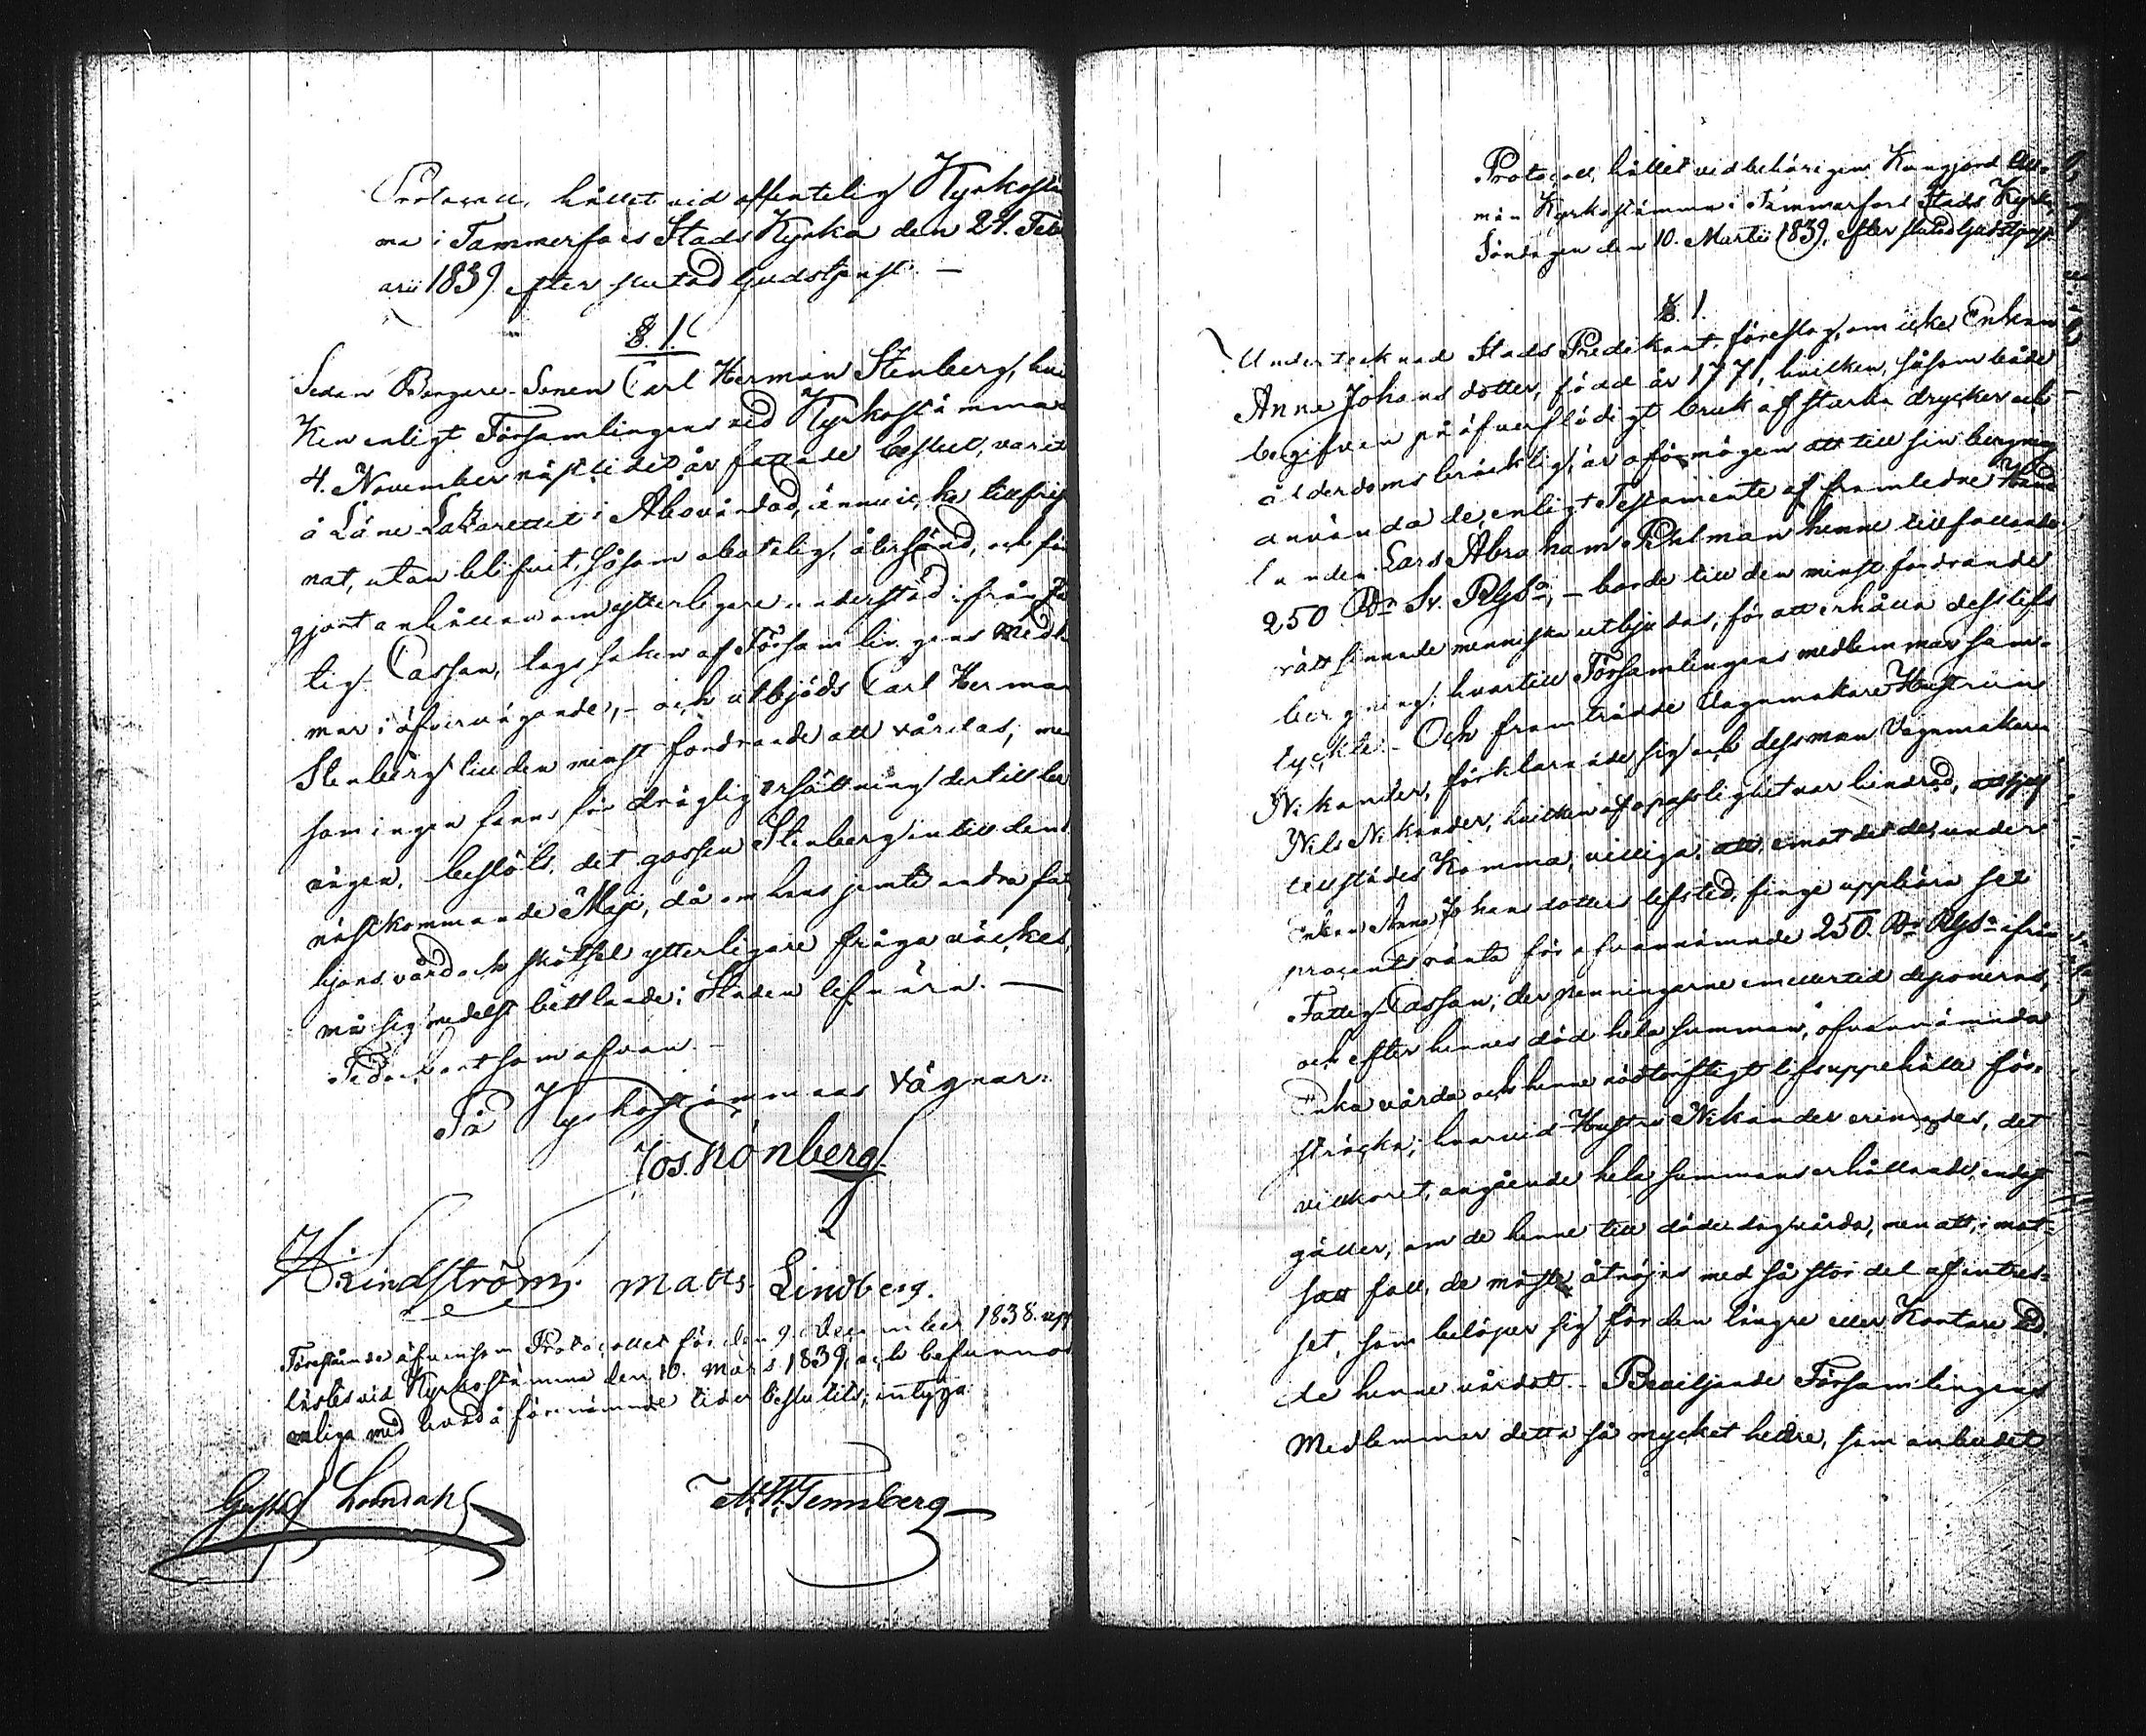 Protocoll, hållet vid offentelig Kyrkostä
ma i Tammerfors Stads Kyrka den 24. Febr
arii 1839 efter slutad Gudstjenst. —
§. 1.
Sedan Borgare-Sonen Carl Herman Stenberg, hvil
ken enligt Församlingens vid Kyrkostämman
4. November nästledit år fattade beslut, varit
å Läne-Lazarettet i Åbo vårdad, ännu icke tillfrisk
nat, utan blifvit, såsom obotelig, återsänd, och för
gjort anhållan om ytterligare understöd ifrån Fa
tig-Cassan, togs saken af Församlingens Medle
mar i öfvervägande, - och utbjöds Carl Herman
Stenberg till den minst fordrande att vårdas; men
som ingen fanns för dräglig ersättning dertill be
vägen, beslöts, det gossen Stenberg intill den 1
nästkommande Maji, då om hans jemte andra fat
tjons vård och skötsel ytterligare fråga väckes,
må sig medelst bettlande i Staden lifnära. —
Tid och ort som ofvan. -
På Kyrkostämmans Vägnar:
Jos. Grönberg
H. Lindström. Matts Lindberg.
Förestående äfvensom Protocollet för den 9. December 1838. upp
lästes vid Kyrkostämma den 10. Mars 1839, och befunnos
enliga med hvad å förenämnde tider beslutits; intyga
Gustaf Lomdahl M. W. Tennberg
Protocoll, hållet vid behörigen Kungjord All-
män Kyrkostämma i Tammerfors Stads Kyrka
Söndagen den 10. Martii 1839, efter slutad Gudstjenst.
§. 1.
Undertecknad Stads Predikant föreslog, om icke Enkan
Anna Johans dotter, född år 1771, hvilken, såsom både
begifven på öfverflödigt bruk af starka drycker och
ålderdoms bräcklig, är oförmögen att till sin bergning
använda de, enligt Testamente af framledne Hand
landen Lars Abraham Pohlman henne tillfallande
250 Rd. Sv. Rgs., - borde till den minst fordrande
rättsinnade menniska utbjudas, för att erhålla dess lifs
bergning; hvartill Församlingens medlemmar sam-
tyckte. - Och framträdde Vagnmakare Hustrun
Nikander, förklarande sig och dess man Vagnmakaren
Nils Nikander, hvilken af opasslighet var hindrad, att sjelf
tillstädes Komma, villiga, att, emot det de, under
Enkan Anna Johansdotters lifstid, finge uppbära sex
procents ränta för ofvannämnde 250. Rd. Rgs. ifrån
Fattig-Cassan, der penningarne emellertid deponeras,
och efter hennes död hela summan, ofvannämnda
Enka vårda och henne nödtorftigt lifsuppehälle för-
sträcka; hvarvid Hustru Nikander erinrades, det
villkoret, angående hela summans erhållande, endast
gäller, om de henne till dödedag vårda, men att, i mot-
satt fall, de måste åtnöjas med så stor del af intres-
set, som belöper sig för den längre eller Kortare tid,
de henne vårdat. - Beviljande Församlingens
Medlemmar detta så mycket hellre, som anbudet